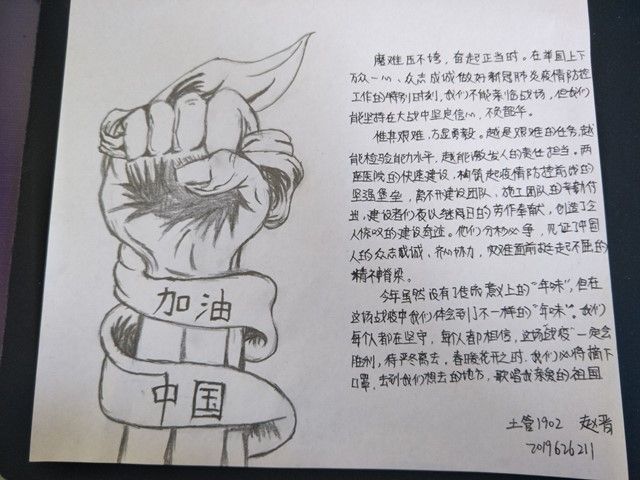 磨难压不垮，奋起正当时。在举国上下
万众一心、众志成诚做好新冠肺炎疫情防控
工作的特别时刻，我们不能亲临战场，但我们
能坚持在大战中坚定信心，不负韶华。
惟其艰难，方显勇毅。越是艰难的任务，越
能检验能力水平，越能激发人的责任担当。两
座医院的快速建设，构筑起疫情防控前线的
坚强堡垒，离不开建设团队、施工团队的辛勤付
出，建设者们夜以继日的劳作奉献，创造了令
人惊叹的建设奇迹。他们分秒必争，见证了中国
人的众志成诚、齐心协力，灾难面前挺起不屈的
精神脊梁。
今年虽然没有了传统意义上的“年味”，但在
这场战疫中我们体会到了不一样的“年味”。我们
每个人都在坚守，每个人都相信，这场战疫一定会
胜利，待严冬离去，春暖花开之时，我们必将摘下
口罩，去到我们想去的地方，歌唱我亲爱的祖国
土管1902 赵晋
2019626211
加油
中国